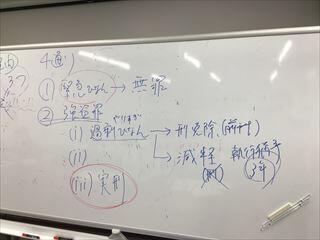 4通り
① 緊急ひなん → 無罪
② 強盗罪
やりすぎ
(i) 過剰ひなん → 刑免除(前科
(ii) → 減軽 執行猶予
(刑) (3年)
(iii) 実刑